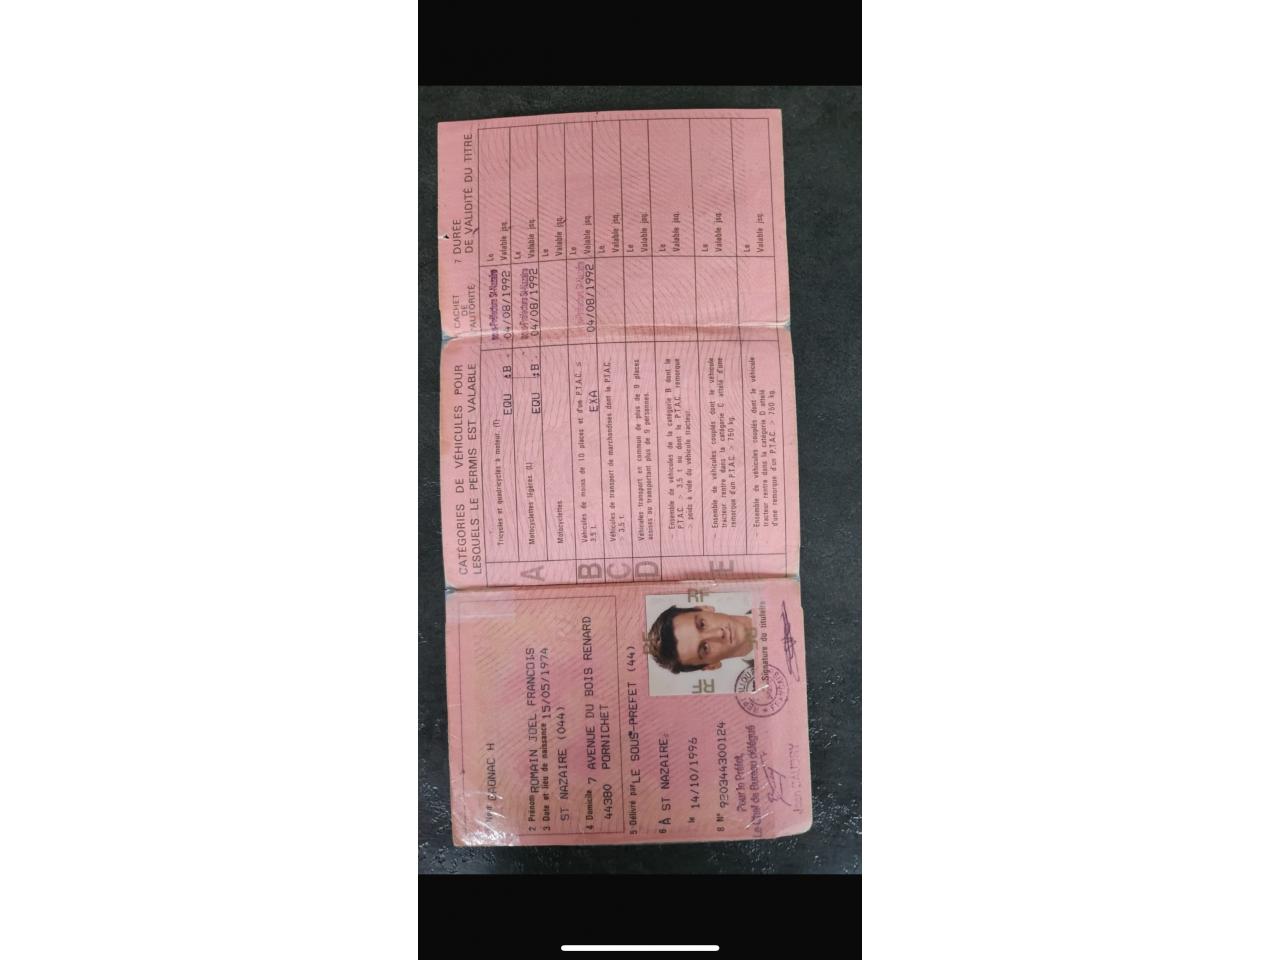 Nom CAGNAC H
2 Prénom ROMAIN JOEL FRANCOIS
3 Date et lieu de naissance 15/05/1974
ST NAZAIRE (044)
4 Domicile 7 AVENUE DU BOIS RENARD
44380 PORNICHET
5 Délivré par LE SOUS-PREFET (44)
6 À ST NAZAIRE
le 14/10/1996
8 N° 920344300124
Pour le Préfet,
Le Chef de Bureau délégué
Signature du titulaire
RF
RF
RF
CATÉGORIES DE VÉHICULES POUR
LESQUELS LE PERMIS EST VALABLE
CACHET
DE
L'AUTORITÉ
7 DURÉE
DE VALIDITÉ DU TITRE
Tricycles et quadricycles à moteur. (1)
EQU :B. 04/08/1992
Le
Valable jsq.
A
Motocyclettes légères (L)
EQU :B. 04/08/1992
Le
Valable jsq.
Motocyclettes
Le
Valable jsq.
B
Véhicules de moins de 10 places et d'un P.T.A.C. ≤
3,5 t.
EXA 04/08/1992
Le
Valable jsq.
C
Véhicules de transport de marchandises dont le P.T.A.C.
> 3,5 t.
Le
Valable jsq.
D
Véhicules transport en commun de plus de 9 places
assises ou transportant plus de 9 personnes.
Le
Valable jsq.
E
— Ensemble de véhicules de la catégorie B dont le
P.T.A.C. > 3,5 t ou dont le P.T.A.C. remorque
> poids à vide du véhicule tracteur.
Le
Valable jsq.
— Ensemble de véhicules couplés dont le véhicule
tracteur rentre dans la catégorie C attelé d'une
remorque d'un P.T.A.C. > 750 kg.
Le
Valable jsq.
— Ensemble de véhicules couplés dont le véhicule
tracteur rentre dans la catégorie D attelé
d'une remorque d'un P.T.A.C. > 750 kg.
Le
Valable jsq.